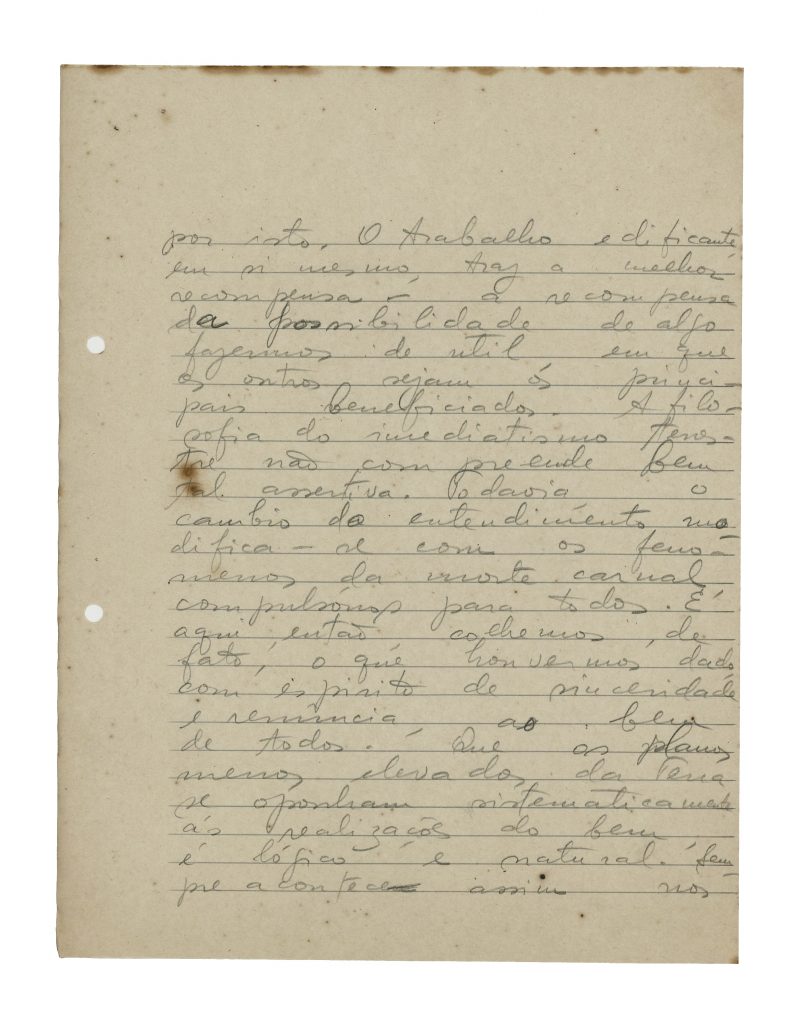 por isto. O trabalho edificante,
em si mesmo, traz a melhor
recompensa - a recompensa
da possibilidade de algo
fazermos de util em que
os outros sejam ós princi-
pais beneficiados. A filo-
sofia do imediatismo terres-
tre não compreende bem
tal assertiva. Todavia o
cambio do entendimento mo
difica-se com os fenô-
menos da morte carnal,
compulsórios para todos. E
aqui, então colhemos, de
fato, o que houvermos dado,
com espirito de sinceridade
e renúncia, ao bem
de todos. Que os planos
menos elevados da Terra
se oponham sistematicamente
ás realizações do bem
é lógico e natural. Sem-
pre acontece assim nos